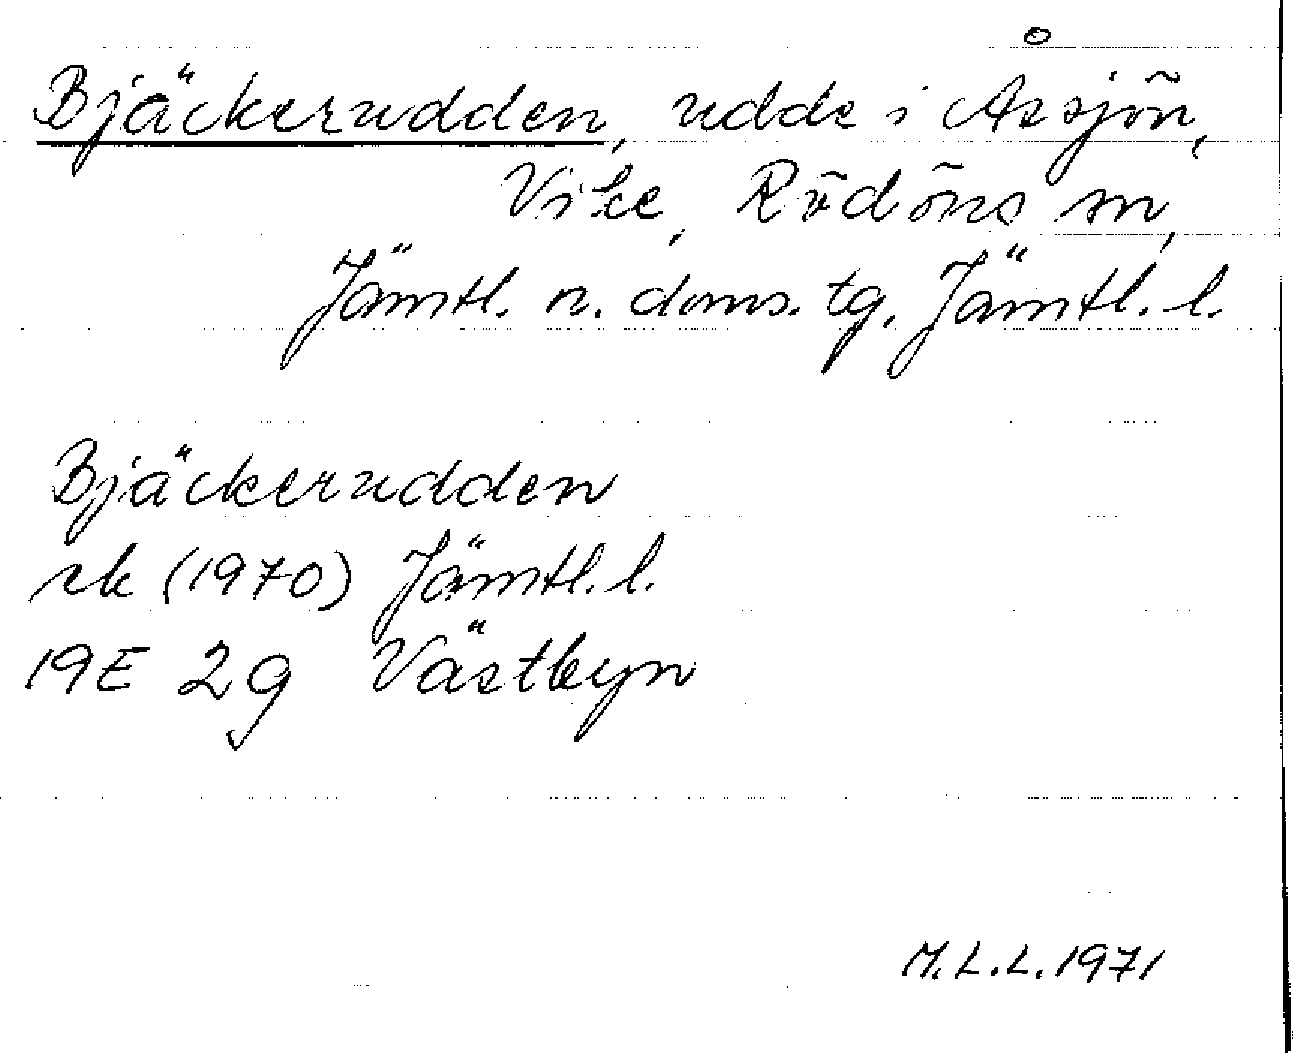 Bjäckerudden, udde i Åssjön,
Vike, Rödöns sn,
Jämtl. n. doms. tg. Jämtl. l.
Bjäckerudden
rk (1970) Jämtl. l.
19E 2g Västbyn
M.L.L. 1971